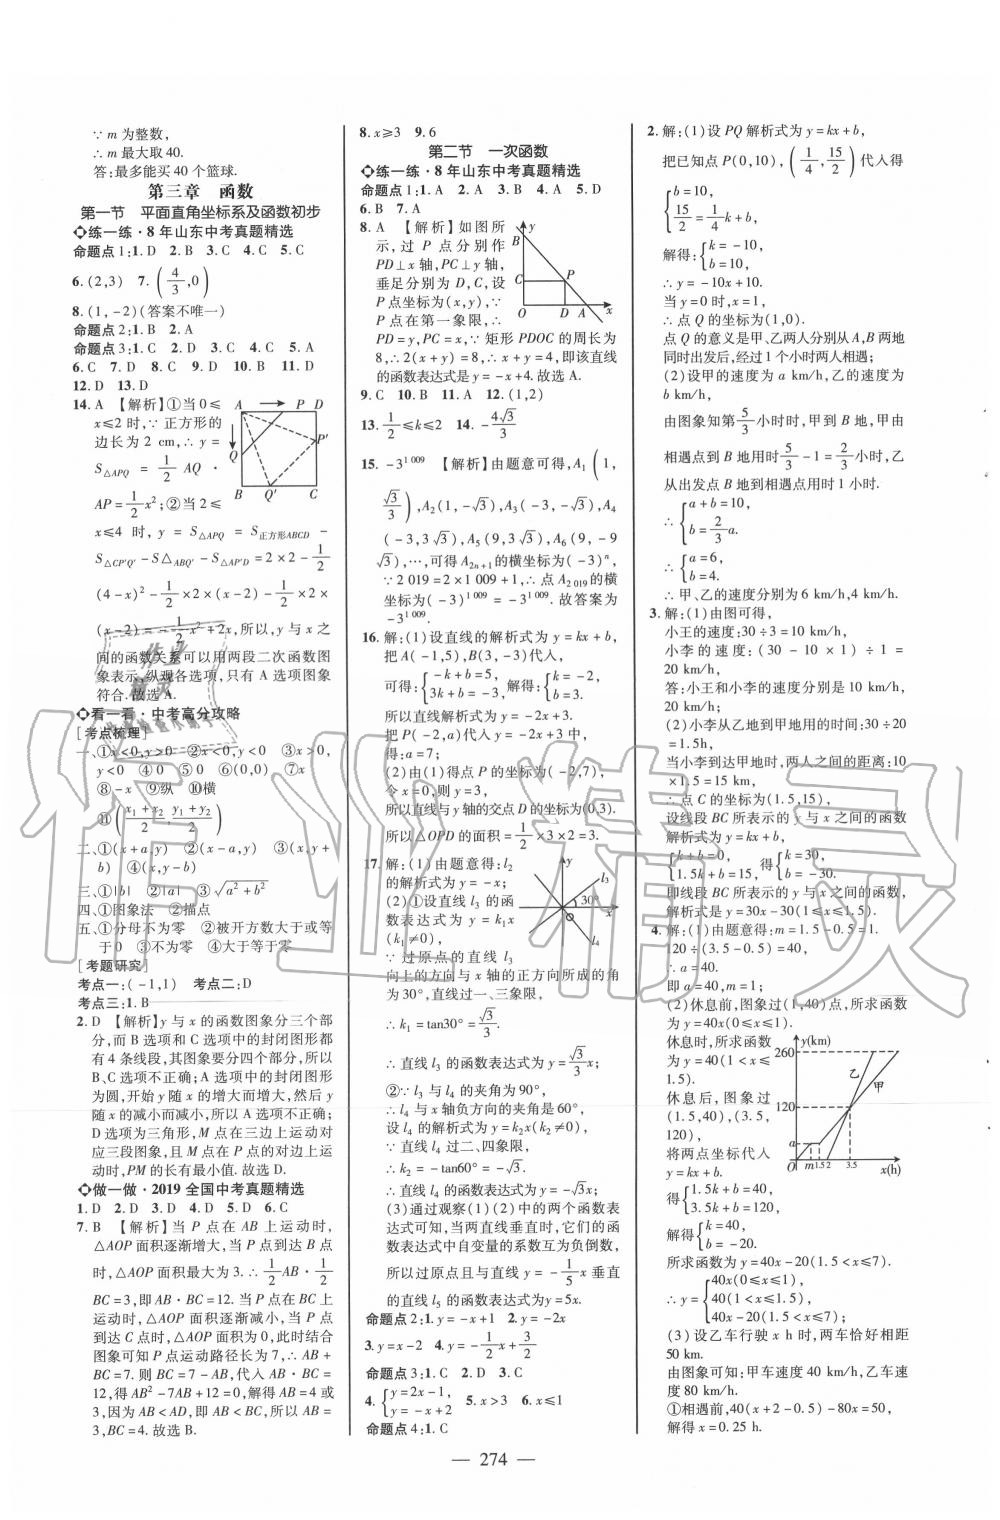 ∵ m 为整数,
∴ m 最大取 40.
答:最多能买 40 个篮球.
第三章 函数
第一节 平面直角坐标系及函数初步
练一练·8 年山东中考真题精选
命题点 1:1. D 2. B 3. C 4. C 5. C
6. (2,3) 7. (4/3,0)
8. (1,-2)(答案不唯一)
命题点 2:1. B 2. A
命题点 3:1. C 2. D 3. C 4. C 5. A
6. C 7. D 8. C 9. D 10. B 11. D
12. D 13. D
14. A 【解析】①当 0≤
x≤2 时,∵ 正方形的
边长为 2 cm,∴ y =
S△APQ = 1/2 AQ ·
AP = 1/2 x²;②当 2≤
x≤4 时, y = S△APQ = S正方形ABCD -
S△CP'Q' - S△ABQ' - S△AP'D = 2×2 - 1/2
(4-x)² - 1/2 ×2×(x-2) - 1/2 ×2×
(x-2) = -1/2 x²+2x,所以,y 与 x 之
间的函数关系可以用两段二次函数图
象表示,纵观各选项,只有 A 选项图象
符合.故选 A.
A P D
P'
Q
B Q' C
看一看·中考高分攻略
[考点梳理]
一、①x<0,y>0 ②x<0,y<0 ③x>0,
y<0 ④0 ⑤0 ⑥(0,0) ⑦x
⑧-x ⑨纵 ⑩横
⑪((x₁+x₂)/2, (y₁+y₂)/2)
二、①(x+a,y) ②(x-a,y) ③(x,y+
b) ④(x,y-b)
三、①|b| ②|a| ③√(a²+b²)
四、①图象法 ②描点
五、①分母不为零 ②被开方数大于或等
于 0 ③不为零 ④大于等于零
[考题研究]
考点一:(-1,1) 考点二:D
考点三:1. B
2. D 【解析】y 与 x 的函数图象分三个部
分,而 B 选项和 C 选项中的封闭图形都
有 4 条线段,其图象要分四个部分,所以
B、C 选项不正确;A 选项中的封闭图形
为圆,开始 y 随 x 的增大而增大,然后 y
随 x 的减小而减小,所以 A 选项不正确;
D 选项为三角形,M 点在三边上运动对
应三段图象,且 M 点在对边上运动
时,PM 的长有最小值.故选 D.
做一做·2019 全国中考真题精选
1. D 2. D 3. D 4. D 5. D 6. C
7. B 【解析】当 P 点在 AB 上运动时,
△AOP 面积逐渐增大,当 P 点到达 B 点
时,△AOP 面积最大为 3. ∴ 1/2 AB · 1/2
BC=3,即 AB·BC=12. 当 P 点在 BC 上
运动时,△AOP 面积逐渐减小,当 P 点
到达 C 点时,△AOP 面积为 0,此时结合
图象可知 P 点运动路径长为 7,∴ AB+
BC=7. 则 BC=7-AB,代入 AB·BC=
12,得 AB²-7AB+12=0,解得 AB=4 或
3,因为 AB<AD,即 AB<BC,所以 AB=
3,BC=4. 故选 B.
8. x≥3 9. 6
第二节 一次函数
练一练·8 年山东中考真题精选
命题点 1:1. A 2. B 3. B 4. A 5. D
6. B 7. A
8. A 【解析】如图所
示,过 P 点分别作
PD⊥x 轴,PC⊥y 轴,
垂足分别为 D、C,设
P 点坐标为(x,y),∵
P 点在第一象限,∴
PD=y,PC=x,∵ 矩形 PDOC 的周长为
8,∴2(x+y)=8,∴x+y=4,即该直线
的函数表达式是 y=-x+4. 故选 A.
y
B
C P
O D A x
9. C 10. B 11. A 12. (1,2)
13. 1/2≤k≤2 14. -4√3/3
15. -3^1 009 【解析】由题意可得,A₁(1,
√3/3),A₂(1,-√3),A₃(-3,-√3),A₄
(-3,3√3),A₅(9,3√3),A₆(9,-9
√3),…,可得 A₂ₙ₊₁的横坐标为(-3)ⁿ,
∵2 019=2×1 009+1,∴ 点 A₂ ₀₁₉的横
坐标为(-3)^1 009=-3^1 009. 故答案为
-3^1 009.
16. 解:(1)设直线的解析式为 y=kx+b,
把 A(-1,5),B(3,-3)代入,
可得:{-k+b=5, 3k+b=-3,解得:{k=-2, b=3.
所以直线解析式为 y=-2x+3.
把 P(-2,a)代入 y=-2x+3 中,
得:a=7;
(2)由(1)得点 P 的坐标为(-2,7),
令 x=0,则 y=3,
所以直线与 y 轴的交点 D 的坐标为(0,3).
所以△OPD 的面积=1/2×3×2=3.
17. 解:(1)由题意得:l₂
的解析式为 y=-x;
(2)①设直线 l₃ 的函
数表达式为 y=k₁x
(k₁≠0),
∵ 过原点的直线 l₃
向上的方向与 x 轴的正方向所成的角
为 30°,直线过一、三象限,
∴ k₁=tan30°=√3/3.
∴ 直线 l₃ 的函数表达式为 y=√3/3 x;
②∵ l₃ 与 l₄ 的夹角为 90°,
∴ l₄ 与 x 轴负方向的夹角是 60°,
设 l₄ 的解析式为 y=k₂x(k₂≠0),
∵ 直线 l₄ 过二、四象限,
∴ k₂=-tan60°=-√3,
∴ 直线 l₄ 的函数表达式为 y=-√3x;
(3)通过观察(1)(2)中的两个函数表
达式可知,当两直线垂直时,它们的函
数表达式中自变量的系数互为负倒数,
所以过原点且与直线 y=-1/5 x 垂直
的直线 l₅ 的函数表达式为 y=5x.
y
l₃
30°
x
O
l₄
命题点 2:1. y=-x+1 2. y=-2x
3. y=x-2 4. y=-1/2 x+3/2
命题点 3:1. C 2. D 3. C
4. {y=2x-1, y=-x+2 5. x>3 6. x≤1
命题点 4:1. C
2. 解:(1)设 PQ 解析式为 y=kx+b,
把已知点 P(0,10),(1/4,15/2)代入得
{b=10, 15/2=1/4 k+b,
解得:{k=-10, b=10.
∴ y=-10x+10.
当 y=0 时,x=1,
∴ 点 Q 的坐标为(1,0).
点 Q 的意义是甲、乙两人分别从 A,B 两地
同时出发后,经过 1 个小时两人相遇;
(2)设甲的速度为 a km/h,乙的速度为
b km/h,
由图象知第 5/3 小时时,甲到 B 地,甲由
相遇点到 B 地用时 5/3-1=2/3 小时,乙
从出发点 B 地到相遇点用时 1 小时.
∴ {a+b=10, b=2/3 a.
∴ {a=6, b=4.
∴ 甲、乙的速度分别为 6 km/h,4 km/h.
3. 解:(1)由图可得,
小王的速度:30÷3=10(km/h),
小李的速度:(30-10×1)÷1=
20(km/h),
答:小王和小李的速度分别是 10 km/h、
20 km/h;
(2)小李从乙地到甲地用的时间:30÷20
=1.5h,
当小李到达甲地时,两人之间的距离:10
×1.5=15(km),
∴ 点 C 的坐标为(1.5,15),
设线段 BC 所表示的 y 与 x 之间的函数
解析式为 y=kx+b,
{k+b=0, 1.5k+b=15, 得{k=30, b=-30.
即线段 BC 所表示的 y 与 x 之间的函数,
解析式是 y=30x-30(1≤x≤1.5).
4. 解:(1)由题意得:m=1.5-0.5=1.
120÷(3.5-0.5)=40.
∴ a=40.
即 a=40,m=1;
(2)休息前,图象过(1,40)点,所求函数
为 y=40x(0≤x≤1).
休息时,所求函数
为 y=40(1<x≤
1.5).
休息后,图象过
(1.5,40),(3.5,
120),
将两点坐标代入
y=kx+b.
得{1.5k+b=40, 3.5k+b=120,
解得{k=40, b=-20.
y(km)
260
乙
甲
120
a
O m 1.5 2 3.5 x(h)
所求函数为 y=40x-20(1.5<x≤7).
∴ y={40x(0≤x≤1), 40(1<x≤1.5), 40x-20(1.5<x≤7)
(3)设乙车行驶 x h 时,两车恰好相距
50 km.
由图象可知:甲车速度 40 km/h,乙车速
度 80 km/h.
①相遇前,40(x+2-0.5)-80x=50,
解得 x=0.25 h.
— 274 —
作业精灵